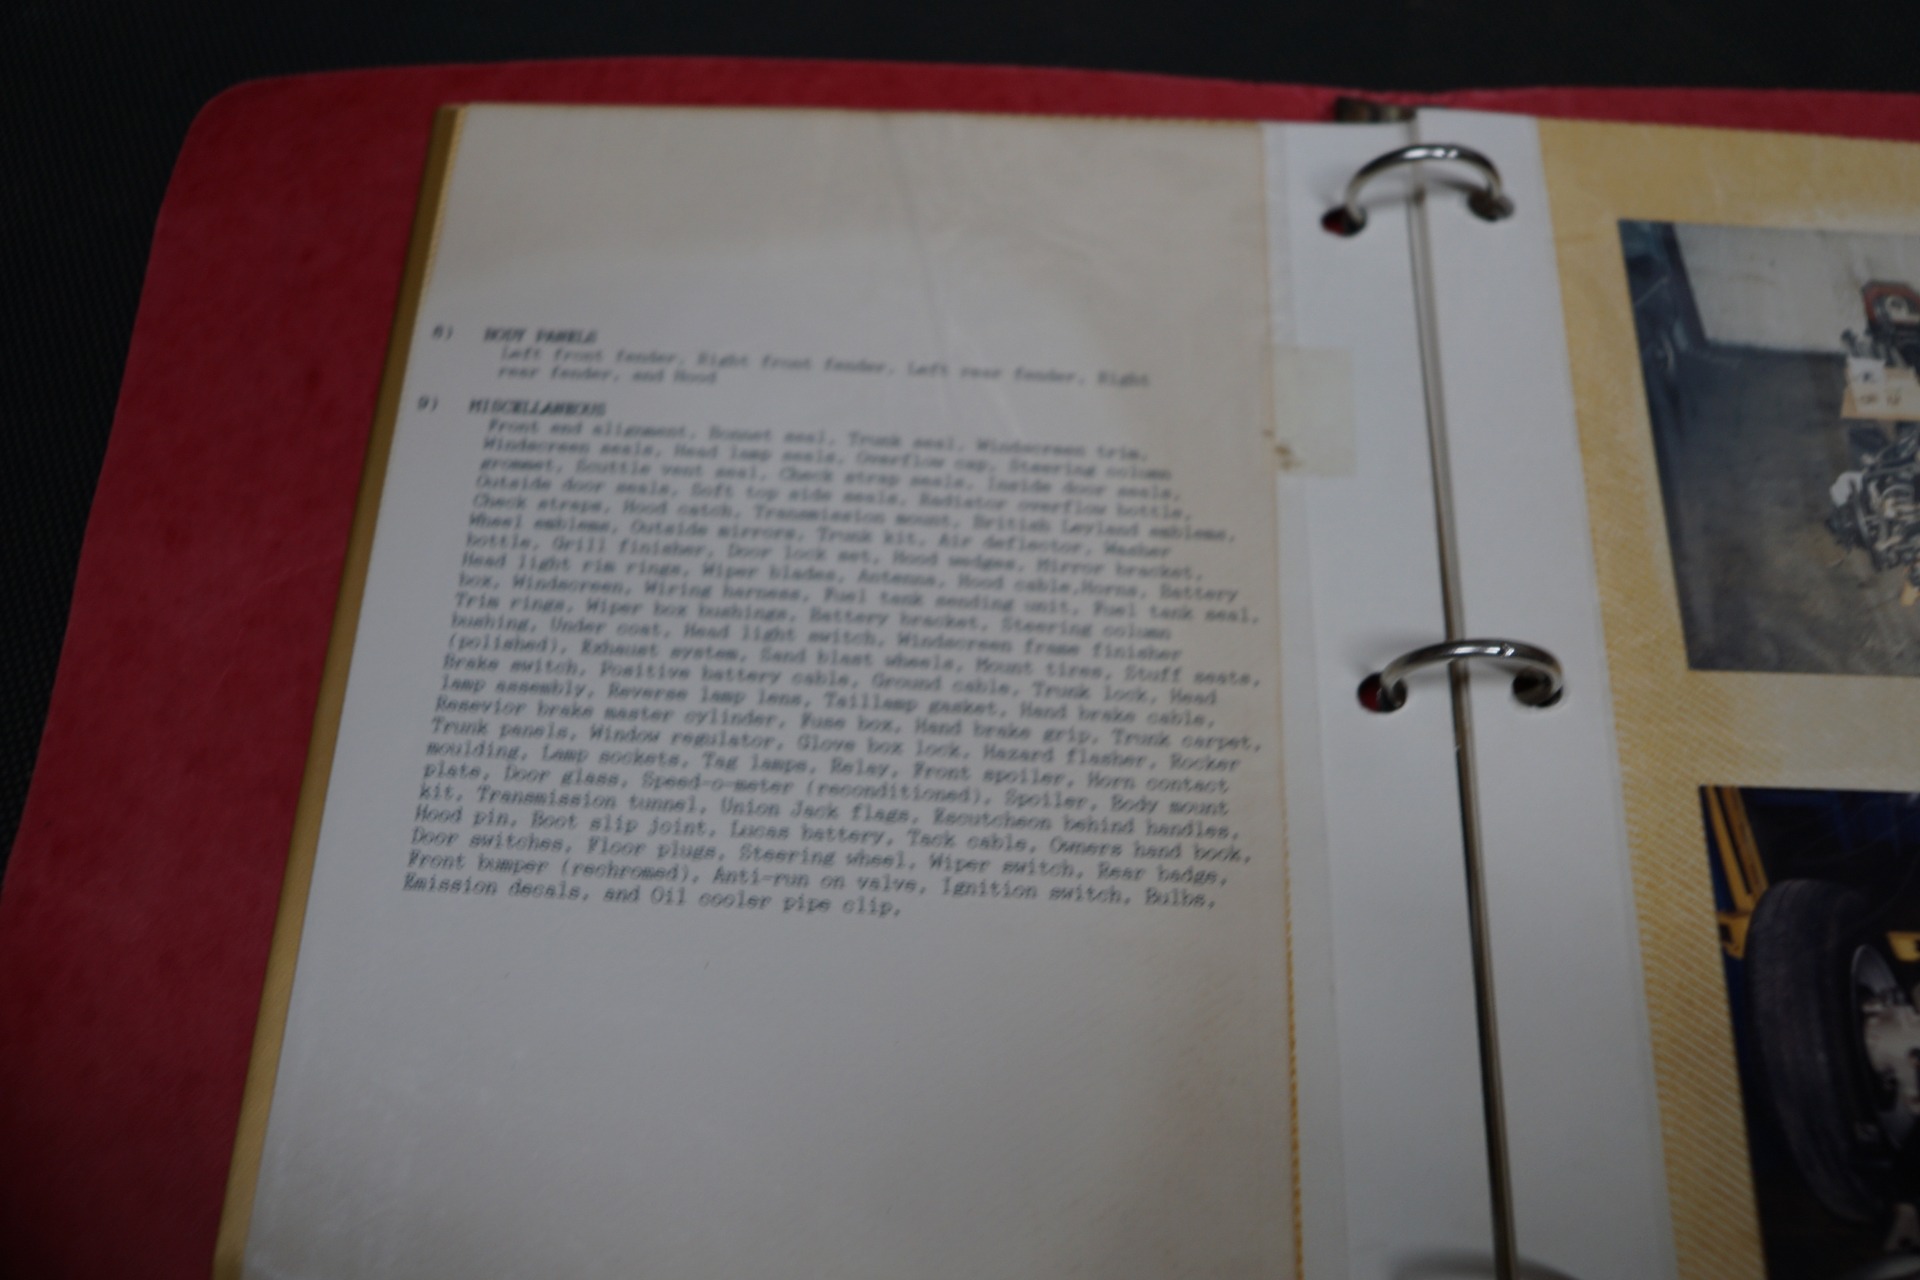 8) BODY PANELS
Left front fender, Right front fender, Left rear fender, Right
rear fender, and Hood
9) MISCELLANEOUS
Front end alignment, Bonnet seal, Trunk seal, Windscreen trim,
Windscreen seals, Head lamp seals, Overflow cap, Steering column
grommet, Scuttle vent seal, Check strap seals, Inside door seals,
Outside door seals, Soft top side seals, Radiator overflow bottle,
Check straps, Hood catch, Transmission mount, British Leyland emblems,
Wheel emblems, Outside mirrors, Trunk kit, Air deflector, Washer
bottle, Grill finisher, Door lock set, Hood wedges, Mirror bracket,
Head light rim rings, Wiper blades, Antenna, Hood cable,Horns, Battery
box, Windscreen, Wiring harness, Fuel tank sending unit, Fuel tank seal,
Trim rings, Wiper box bushings, Battery bracket, Steering column
bushing, Under coat, Head light switch, Windscreen frame finisher
(polished), Exhaust system, Sand blast wheels, Mount tires, Stuff seats,
Brake switch, Positive battery cable, Ground cable, Trunk lock, Head
lamp assembly, Reverse lamp lens, Taillamp gasket, Hand brake cable,
Resevior brake master cylinder, Fuse box, Hand brake grip, Trunk carpet,
Trunk panels, Window regulator, Glove box lock, Hazard flasher, Rocker
moulding, Lamp sockets, Tag lamps, Relay, Front spoiler, Horn contact
plate, Door glass, Speed-o-meter (reconditioned), Spoiler, Body mount
kit, Transmission tunnel, Union Jack flags, Escutcheon behind handles,
Hood pin, Boot slip joint, Lucas battery, Tack cable, Owners hand book,
Door switches, Floor plugs, Steering wheel, Wiper switch, Rear badge,
Front bumper (rechromed), Anti-run on valve, Ignition switch, Bulbs,
Emission decals, and Oil cooler pipe clip.